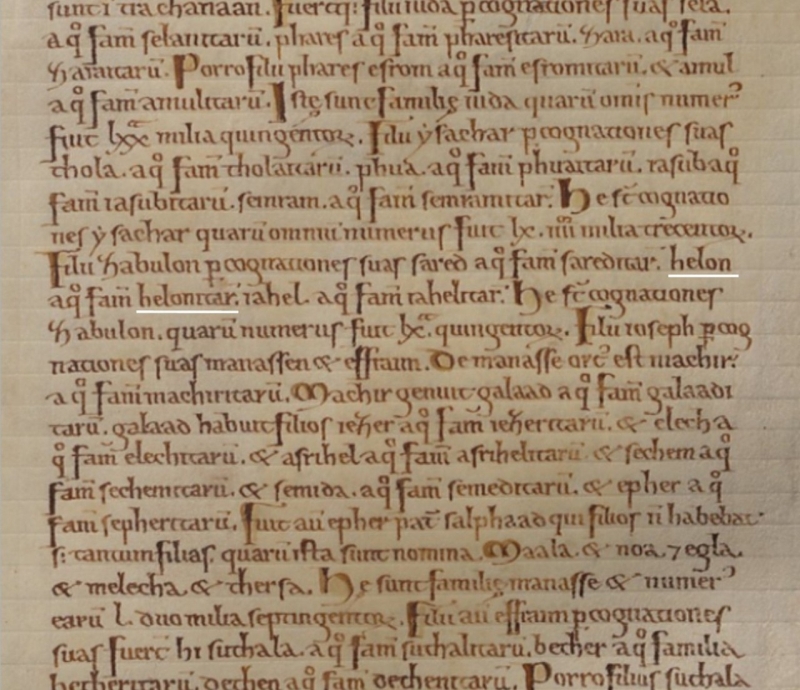 sunt ĩ tra chanaan. Fuertq: filii iuda p cognationes suas sela.
a q̊ fam̄ selanitarū. phares a q̊ fam̄ pharesitarū. Zara. aq̊ fam̄
Zaraitarū. Porro filii phares esrom aq̊ fam̄ esromitarū. & amul
a q̊ fam̄ amulitarū. Istę sunt familię iuda quarū omīs numer᾿
fuit lxx milia quingentoꝝ. Filii ysachar p cognationes suas
thola. aq̊ fam̄ tholaitarū. phua. aq̊ fam̄ phuaitarū. iasub aq̊
fam̄ iasubitarū. semram. aq̊ fam̄ semramitar̄. He st̄ cognatio
nes ysachar quarū omniū numerus fuit lx. iiii milia trecentoꝝ.
Filii Zabulon p cognationes suas sared aq̊ fam̄ sareditar̄. helon
aq̊ fam̄ helonitar̄. iahel. aq̊ fam̄ iahelitar̄. He st̄ cognationes
Zabulon. quarū numerus fuit lx̄. quingentoꝝ. Filii ioseph p cog
nationes suas manassen & effraim. De manasse ort᾿ est machir.
a q̊ fam̄ machiritarū. Machir genuit galaad a q̊ fam̄ galaadi
tarū. galaad habuit filios iezer aq̊ fam̄ iezeritarū. & elech a
q̊ fam̄ elechitarū. & asrihel aq̊ fam̄ asrihelitarū & sechem aq̊
fam̄ sechemitarū. & semida. aq̊ fam̄ semeditarū. & epher a q̊
fam̄ sepheritarū. Fuit aū epher pat̄ salphaad qui filios ñ habebat
s; tantum filias. quarū ista sunt nomina. Maala. & noa. 7 egla.
& melecha. & thersa. He sunt familię manasse & numer᾿
earū l. duo milia septingentoꝝ. Filii aū effraim p cognationes
suas fuert hi suthala. a q̊ fam̄ suthalitarū. becher aq̊ familia
becheritarū. dethen aq̊ fam̄ dethenitarū. Porro filius suthala